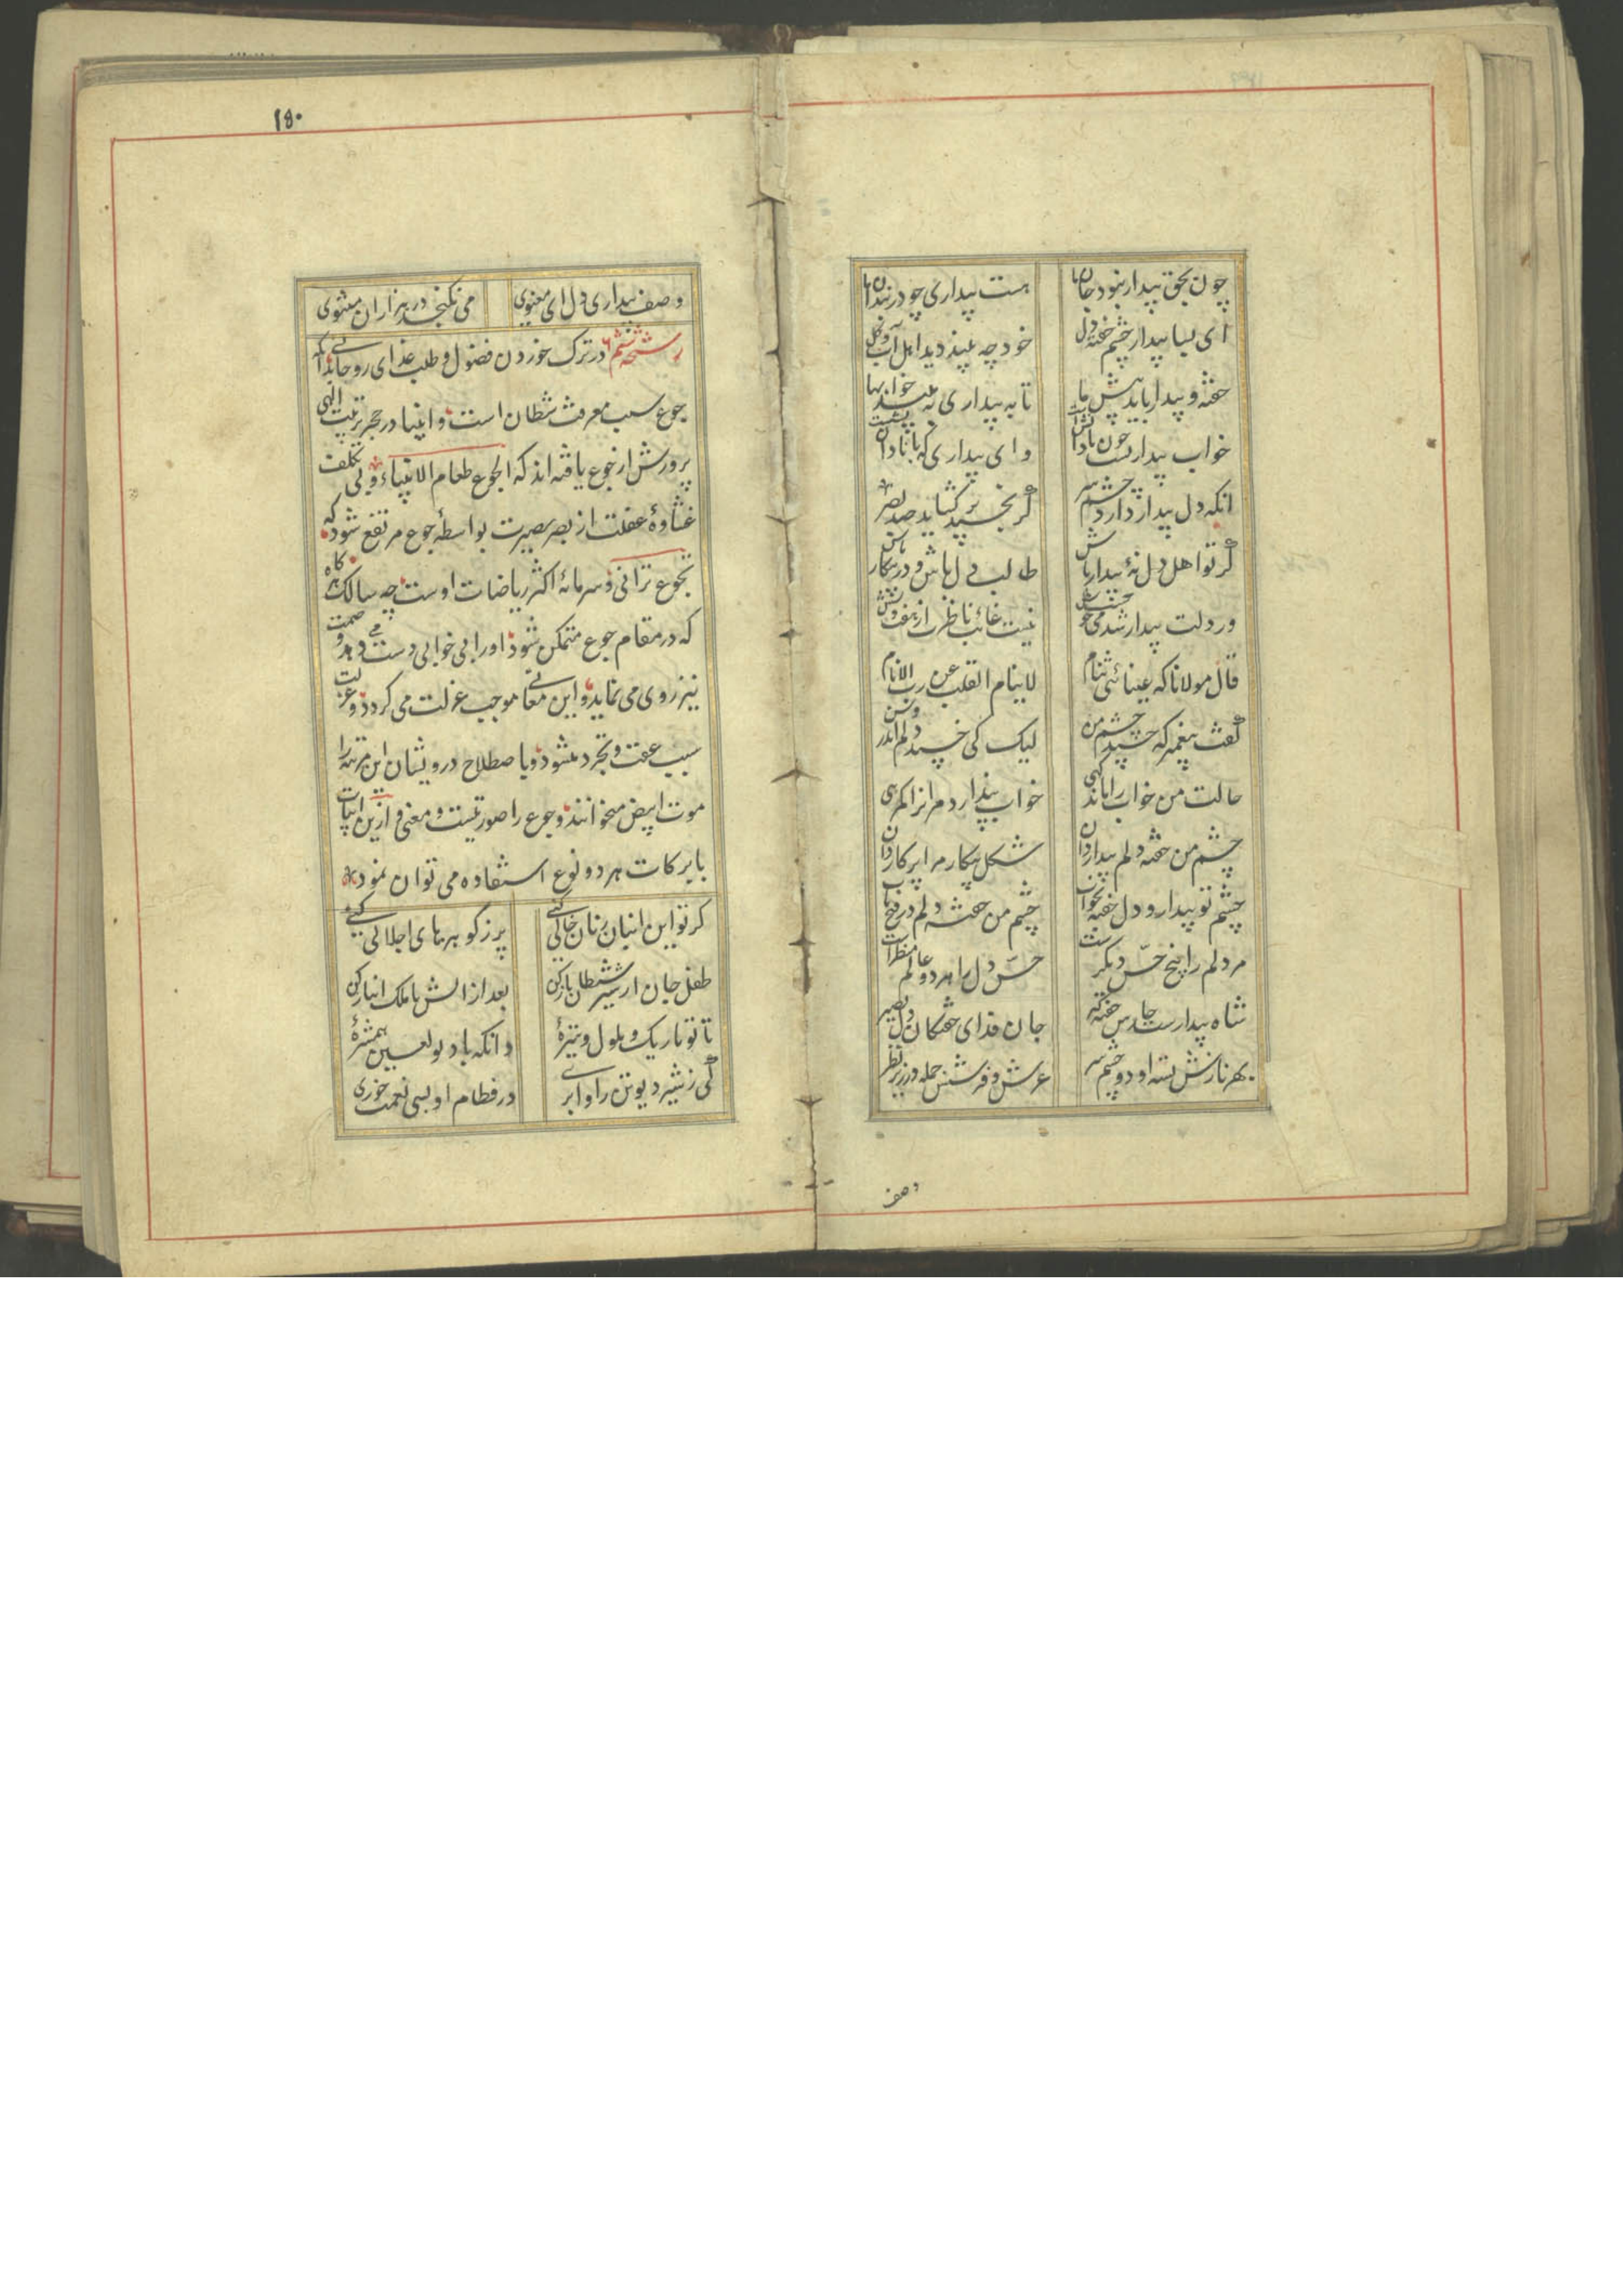 چون بحق بیدار نبود جان ما هست بیداری چو در بندان ما
ای بسا بیدار چشم خفته دل خود چه بیند دید اهل آب و گل
خفته و بیدار باید پیش ما تا به بیداری به بیند خوابها
خواب بیدارست چون با دانش است وای بیداری که با نادان نشست
انکه دل بیدار دارد چشم سر گر بخسپد بر گشاید صد بصر
گر تو اهل دل نهٔ بیدار باش طالب دل باش و در پیکار باش
ور دلت بیدار شد می خسپ خوش نیست غائب ناظرت از هفت و شش
قال مولانا که عینائی تنام لاینام القلب عن رب الانام
گفت پیغمبر که خسپد چشم من لیک کی خسپد دلم اندر وسن
حالت من خواب را ماند گهی خواب پندارد مر انرا گمرهی
چشم من خفته دلم بیدار دان شکل بیکار مرا بر کار دان
چشم تو بیدار و دل خفته بخواب چشم من خفته دلم در فتح باب
مر دلم را پنج حسّ دیگرست حسّ دل را هر دو عالم منظرست
شاه بیدارست حارس خفته گیر جان فدای خفتگان دل بصیر
بهر نازش بسته او دو چشم سر عرش و فرشش جمله در زیر نظر
وصف
١٥٠
وصف بیداری دل ای معنوی می نگنجد در هزاران مثنوی
رشحه ششم در ترک خوردن فضول و طلب غذای روحانی بدانکه
جوع سبب معرفت شطان است و انبیا در حجر تربیت الهی
پرورش از جوع یافته اند که الجوع طعام الانبیاء و بی تکلف
غشاوهٔ غفلت از بصر بصیرت بواسطهٔ جوع مرتفع شود که
تجوع ترانی و سرمایهٔ اکثر ریاضات اوست چه سالک هر گاه
که در مقام جوع متمکن شود او را بی خوابی دست می دهد و صمت
نیز روی می نماید و این معانی موجب عزلت می گردد و عزلت
سبب عفت و تجرد میشود و باصطلاح درویشان این مرتبه را
موت ابیض میخوانند و جوع را صورتیست و معنی و ازین ابیات
بابرکات هر دو نوع استفاده می توان نمود
گر تو این انبان ز نان خالی کنی پر ز گوهرهای اجلالی کنی
طفل جان از شیر شیطان باز کن بعد از انش با ملک انباز کن
تا تو تاریک و ملول و تیرهٔ دانکه با دیو لعین همشیرهٔ
کی ز شیر دیو تن را وا بری در فطام او بسی نعمت خوری